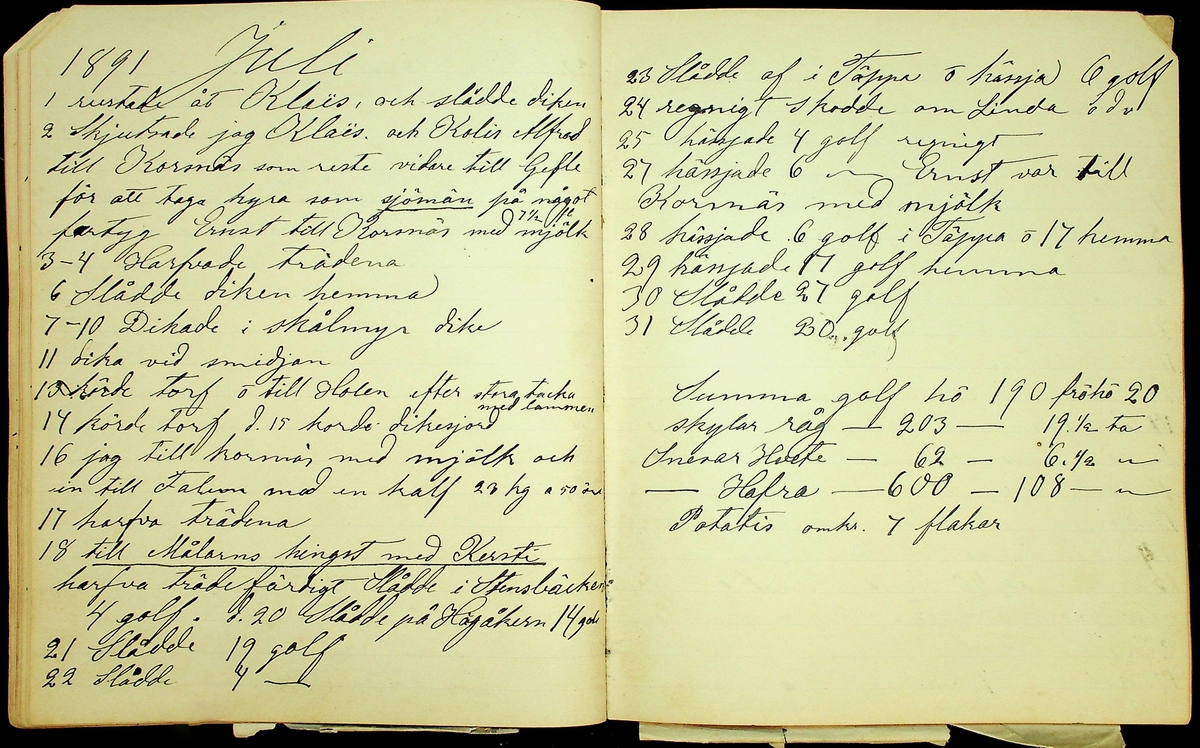 1891 Juli
1 rustade åt Klaës, och slådde diken
2 Skjutsade jag Klaës. och Kolis Alfred
till Korsnäs som reste vidare till Gefle
för att taga hyra som sjömän på något
fartyg Ernst till Korsnäs med 7 1/2 mjölk
3-4 Harfvade trädena
6 Slådde diken hemma
7-10 Dikade i skålmyr dike
11 dika vid smidjan
13 körde torf o till Holen efter stora tacka
med lammen
14 körde torf d. 15 körde dikesjord
16 jag till korsnäs med mjölk och
in till Falun med en kalf 23 kg a 50 öre
17 harfva trädena
18 till Målarns hingst med Kersti
harfva träde färdigt Slådde i Stensbäcken
4 golf. d. 20 Slådde på Hagåkern 14 golf
21 Slådde 19 golf
22 Slådde 4 —
23 Slådde af i Täppa o hässja 6 golf
24 regnigt skodde om Linda o dv
25 hässjade 4 golf regnigt
27 hässjade 6 — Ernst var till
Korsnäs med mjölk
28 hässjade 6 golf i Täppa o 17 hemma
29 hässjade 17 golf hemma
30 Slådde 27 golf
31 Slådde 30 golf
Summa golf hö 190 fröhö 20
skylar råg — 203 — 19.1/2 ta
Snesar Hvete — 62 — 6.1/2 —
— Hafra — 600 — 108 — —
Potatis omkr. 7 flakar